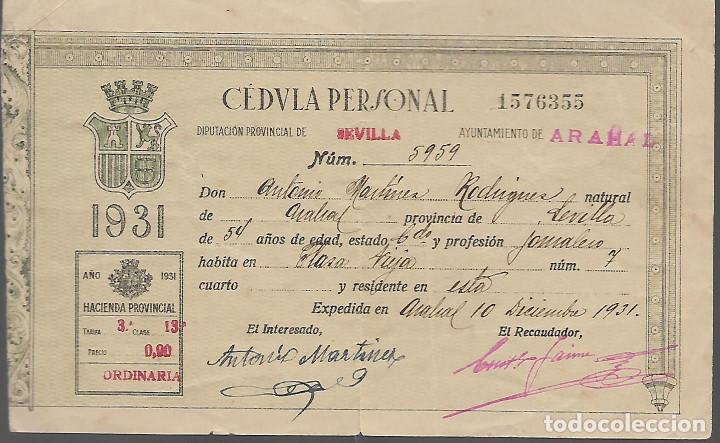 CÉDVLA PERSONAL 1576355
DIPUTACIÓN PROVINCIAL DE SEVILLA AYUNTAMIENTO DE ARAHAL
Núm. 5959
Don Antonio Martines Rodrigues natural
de Arahal provincia de Sevilla
de 54 años de edad, estado Cdo y profesión Jornalero
habita en Plasa Vieja núm. 7
cuarto y residente en esta
Expedida en Arahal 10 Diciembre 1931.
El Interesado, El Recaudador,
Antonio Martines
1931
AÑO 1931
HACIENDA PROVINCIAL
TARIFA 3.ª CLASE 13ª
PRECIO 0,90
ORDINARIA
todocoleccion
todocoleccion.net